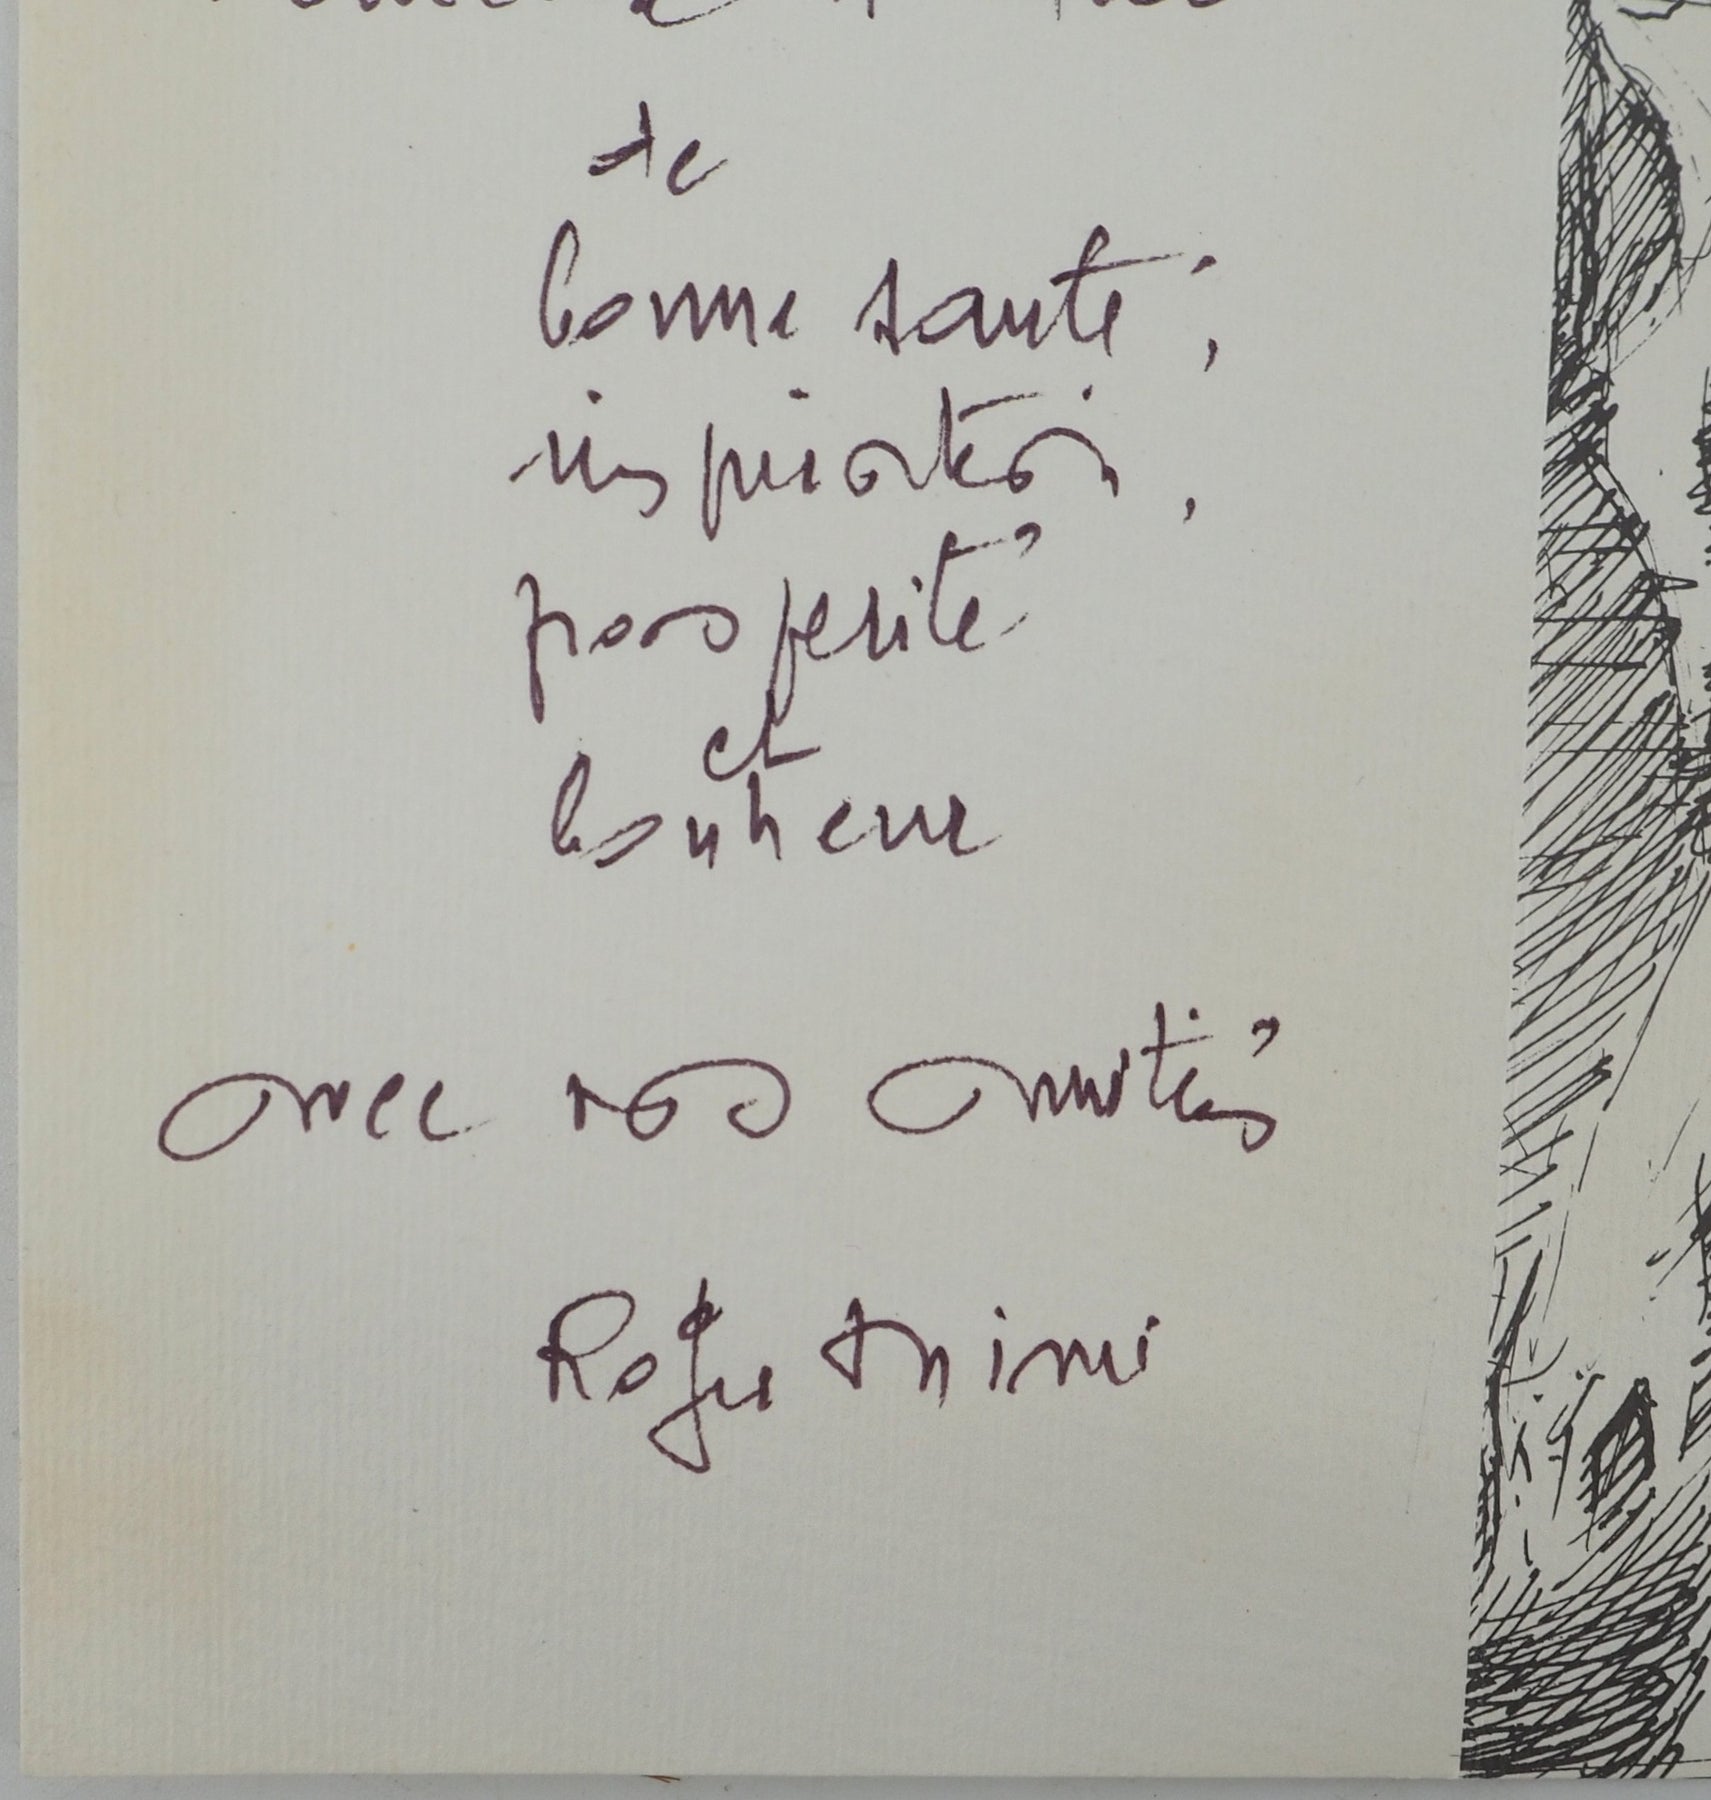 de
bonne santé,
inspiration,
prosperité
et
bonheur
avec nos amitiés
Roger